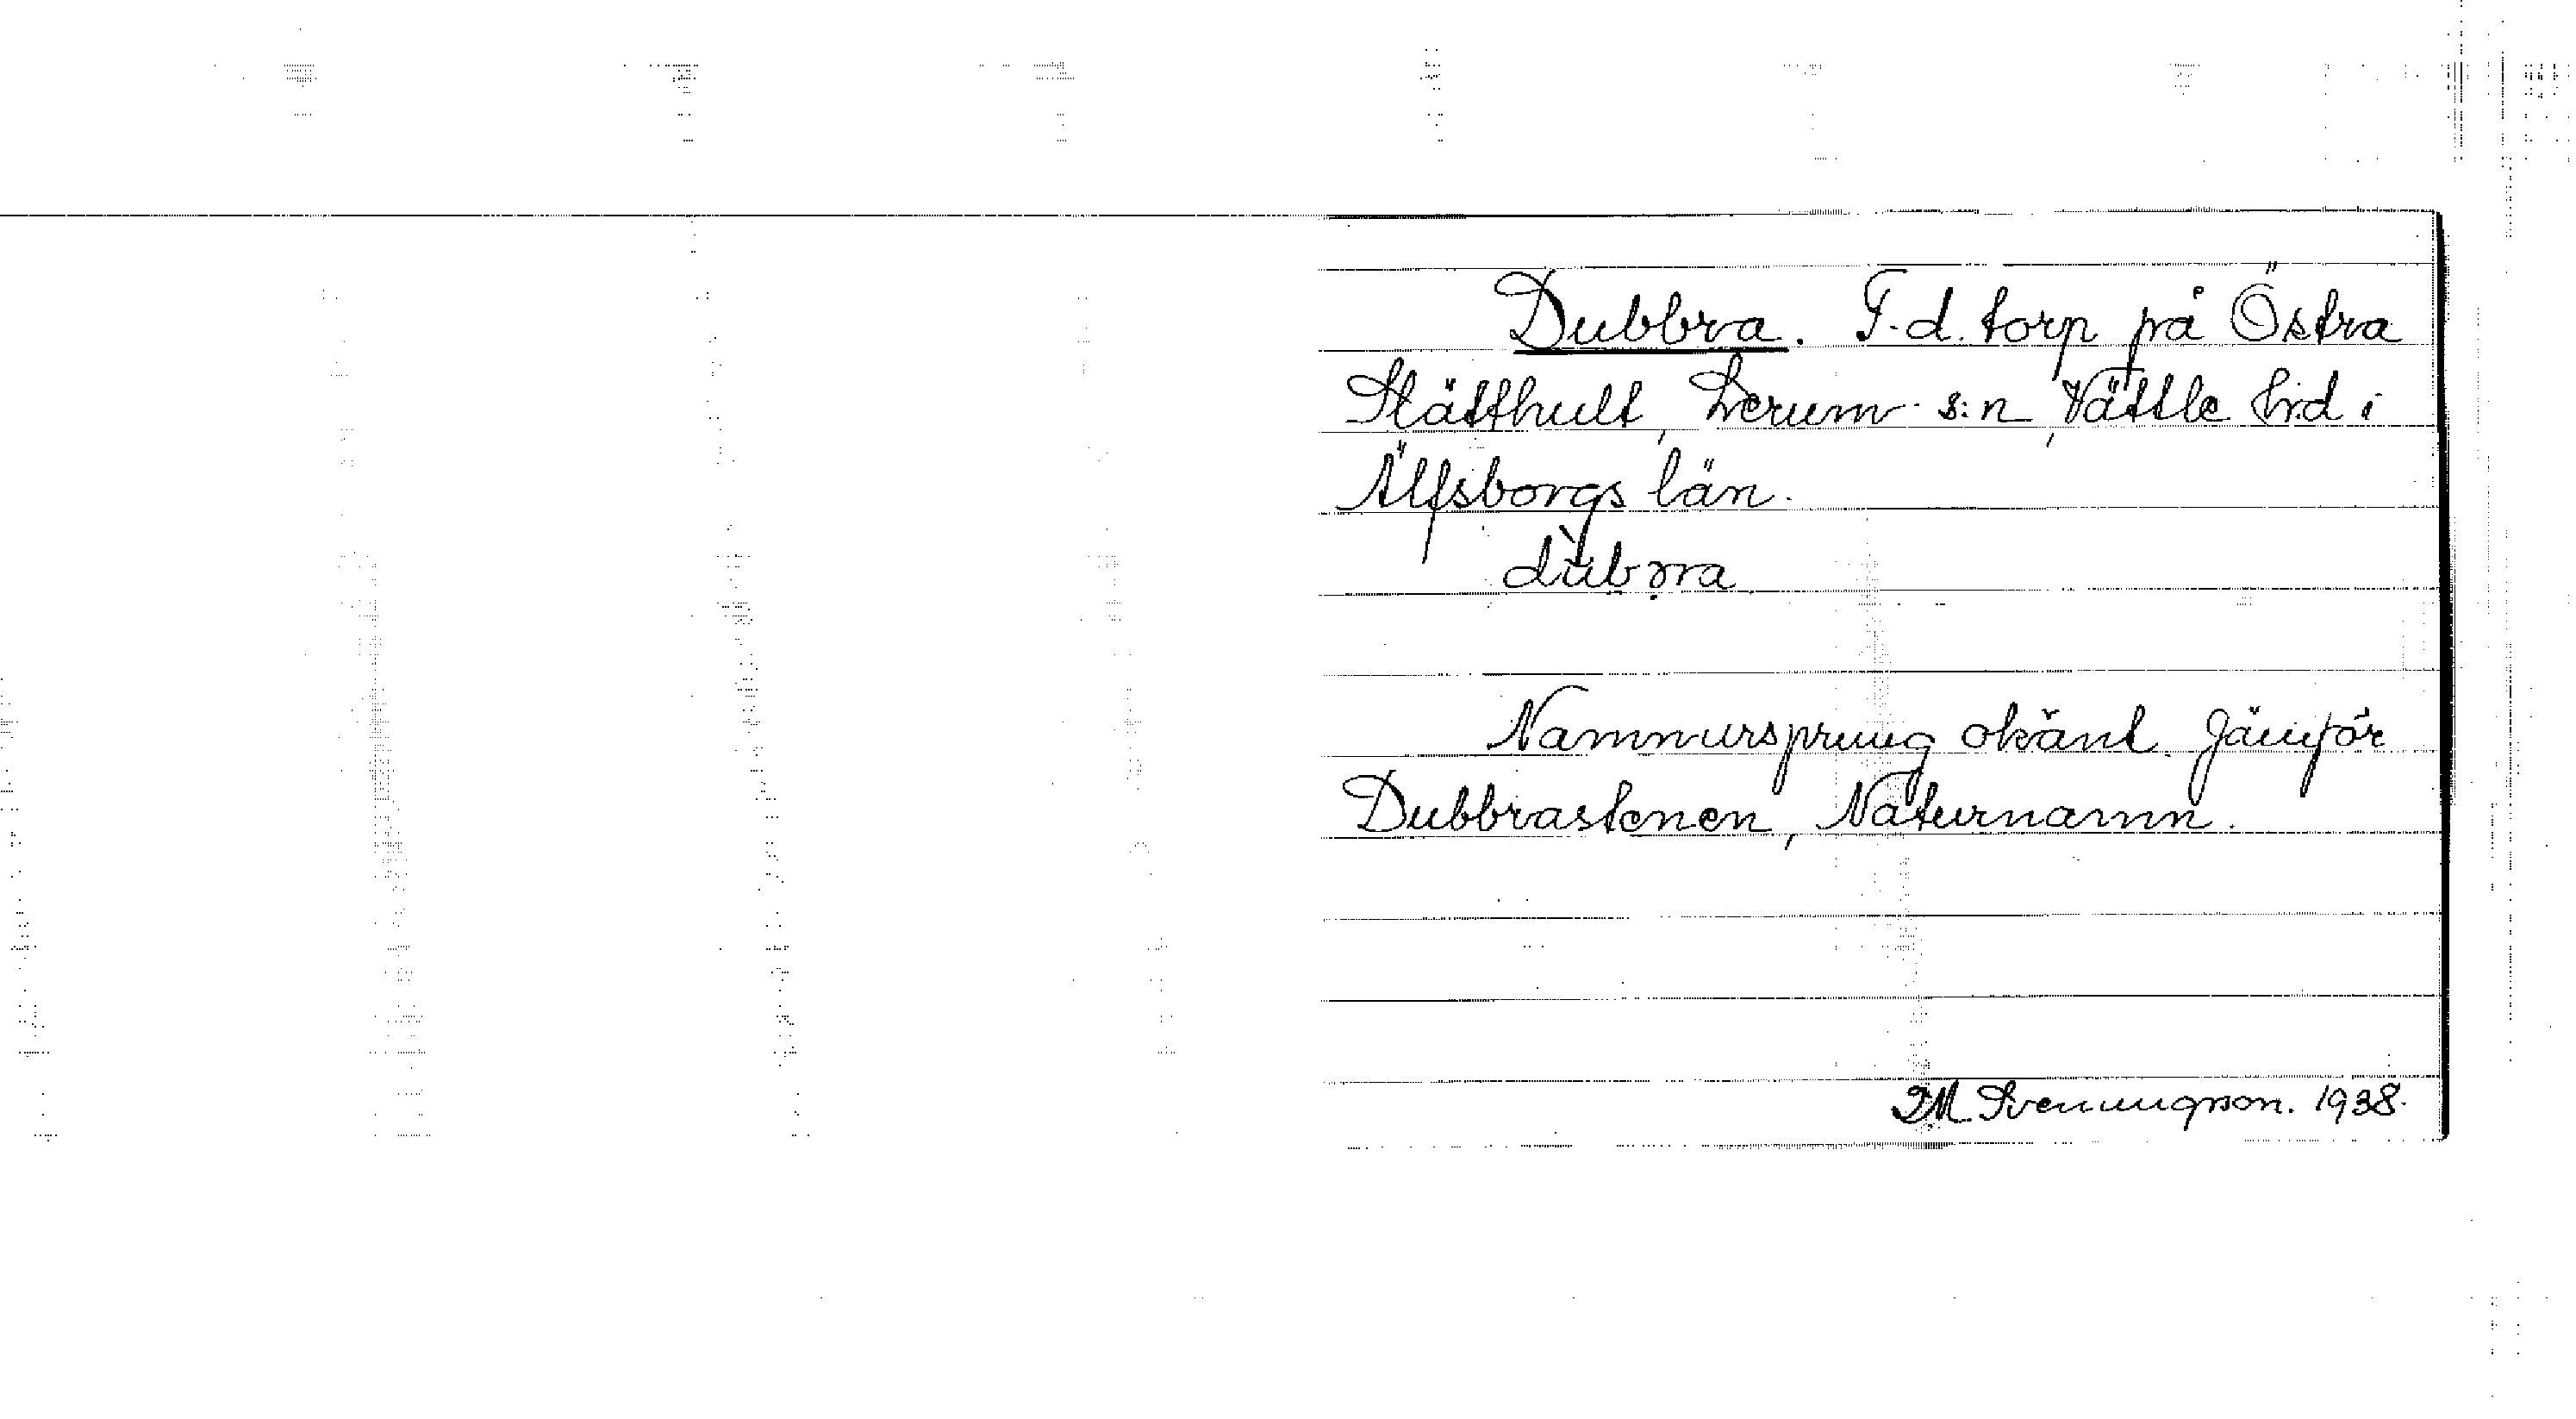 Dubbra. F.d. torp på Östra
Slätthult, Lerum s:n, Vättle hrd i
Älfsborgs län.
Namnursprung okänt. Jämför
Dubbrastenen, Naturnamn.
Svenungson. 1938.